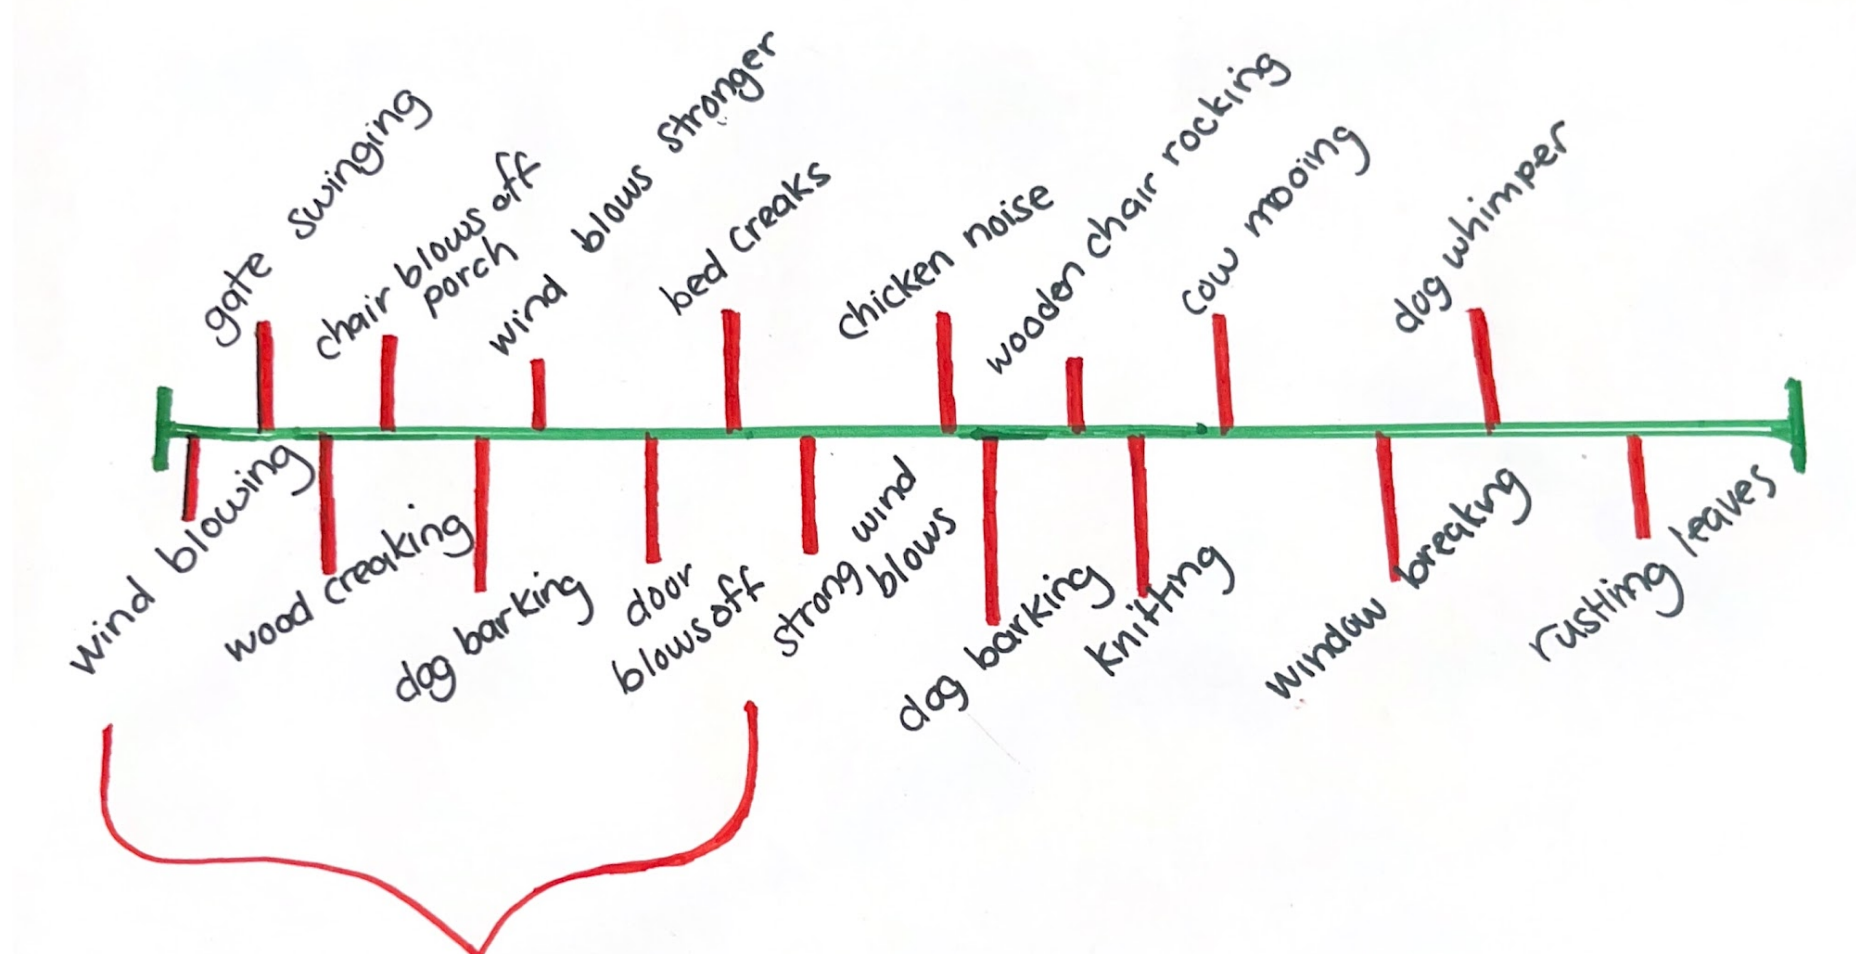 gate swinging
chair blows off
porch
wind blows stronger
bed creaks
chicken noise
wooden chair rocking
cow mooing
dog whimper
wind blowing
wood creaking
dog barking
door
blows off
strong wind
blows
dog barking
knitting
window breaking
rustling leaves